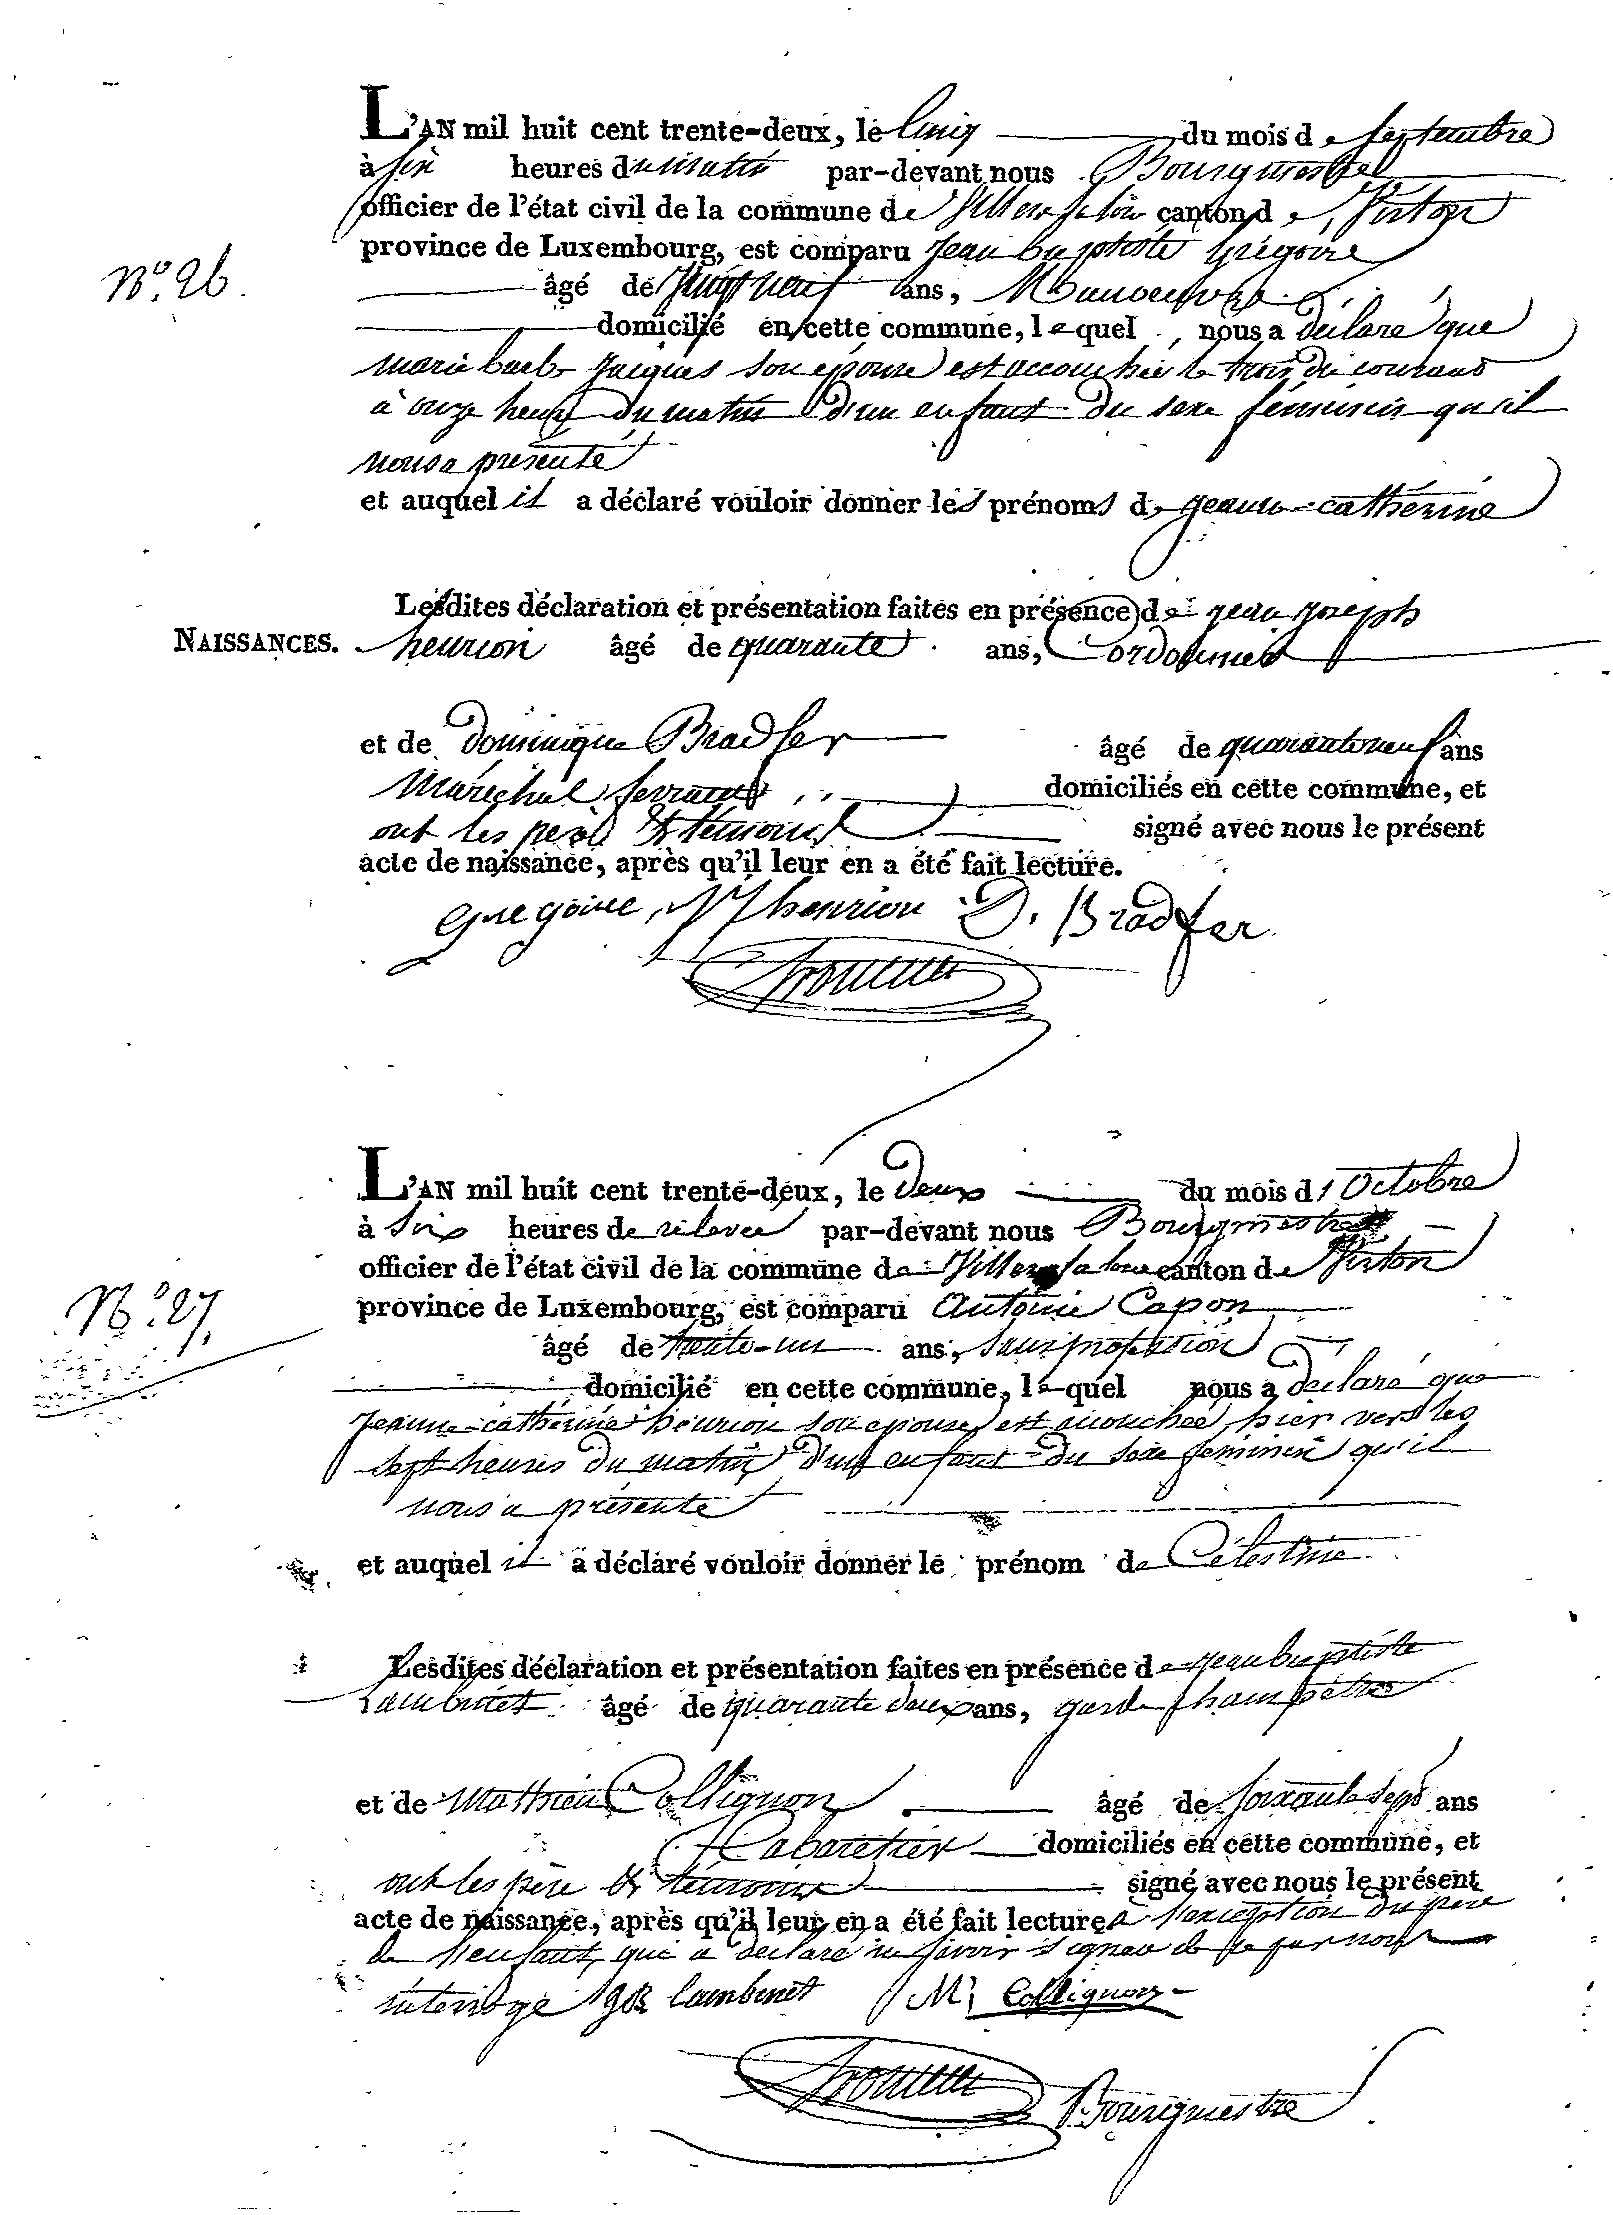 L'AN mil huit cent trente-deux, le Cinq du mois de Septembre
à six heures du matin par-devant nous Bourgmestre
officier de l'état civil de la commune de Villers la loue canton de Virton
province de Luxembourg, est comparu Jean baptiste grégoire
N.º 26.
âgé de vingt neuf ans, Manoeuvre
domicilié en cette commune, lequel nous a déclaré que
marie barbe Jacques son épouse est accouchée le trois du courant
à onze heures du matin d'un enfant du sexe féminin qu'il
nous a présenté
et auquel il a déclaré vouloir donner les prénoms de jeanne-cathérine
Lesdites déclaration et présentation faites en présence de jean joseph
NAISSANCES.
henrion âgé de quarante ans, Cordonnier
et de dominique Bradfer âgé de quarante neuf ans
Maréchal ferrant domiciliés en cette commune, et
ont les père & témoins signé avec nous le présent
acte de naissance, après qu'il leur en a été fait lecture.
gregoire, JJ henrion D. Bradfer
L'AN mil huit cent trente-deux, le deux du mois d'Octobre
à six heures de relevée par-devant nous Bourgmestre
officier de l'état civil de la commune de Villers la loue canton de Virton
N.º 27.
province de Luxembourg, est comparu Antoine Capon
âgé de trente-un ans, sans profession
domicilié en cette commune, lequel nous a déclaré que
Jeanne-cathérine henrion son épouse est accouchée hier vers les
sept heures du matin d'un enfant du sexe féminin qu'il
nous a présenté
et auquel il a déclaré vouloir donner le prénom de Célestine
Lesdites déclaration et présentation faites en présence de jean baptiste
Lambinet âgé de quarante deux ans, garde champêtre
et de Mathieu Collignon âgé de soixante sept ans
Cabaretier domiciliés en cette commune, et
ont les père & témoins signé avec nous le présent
acte de naissance, après qu'il leur en a été fait lecture à l'exception du père
de l'enfant, qui a déclaré ne savoir signer de ce par nous
interrogé JB Lambinet M. Collignon
Bourgmestre